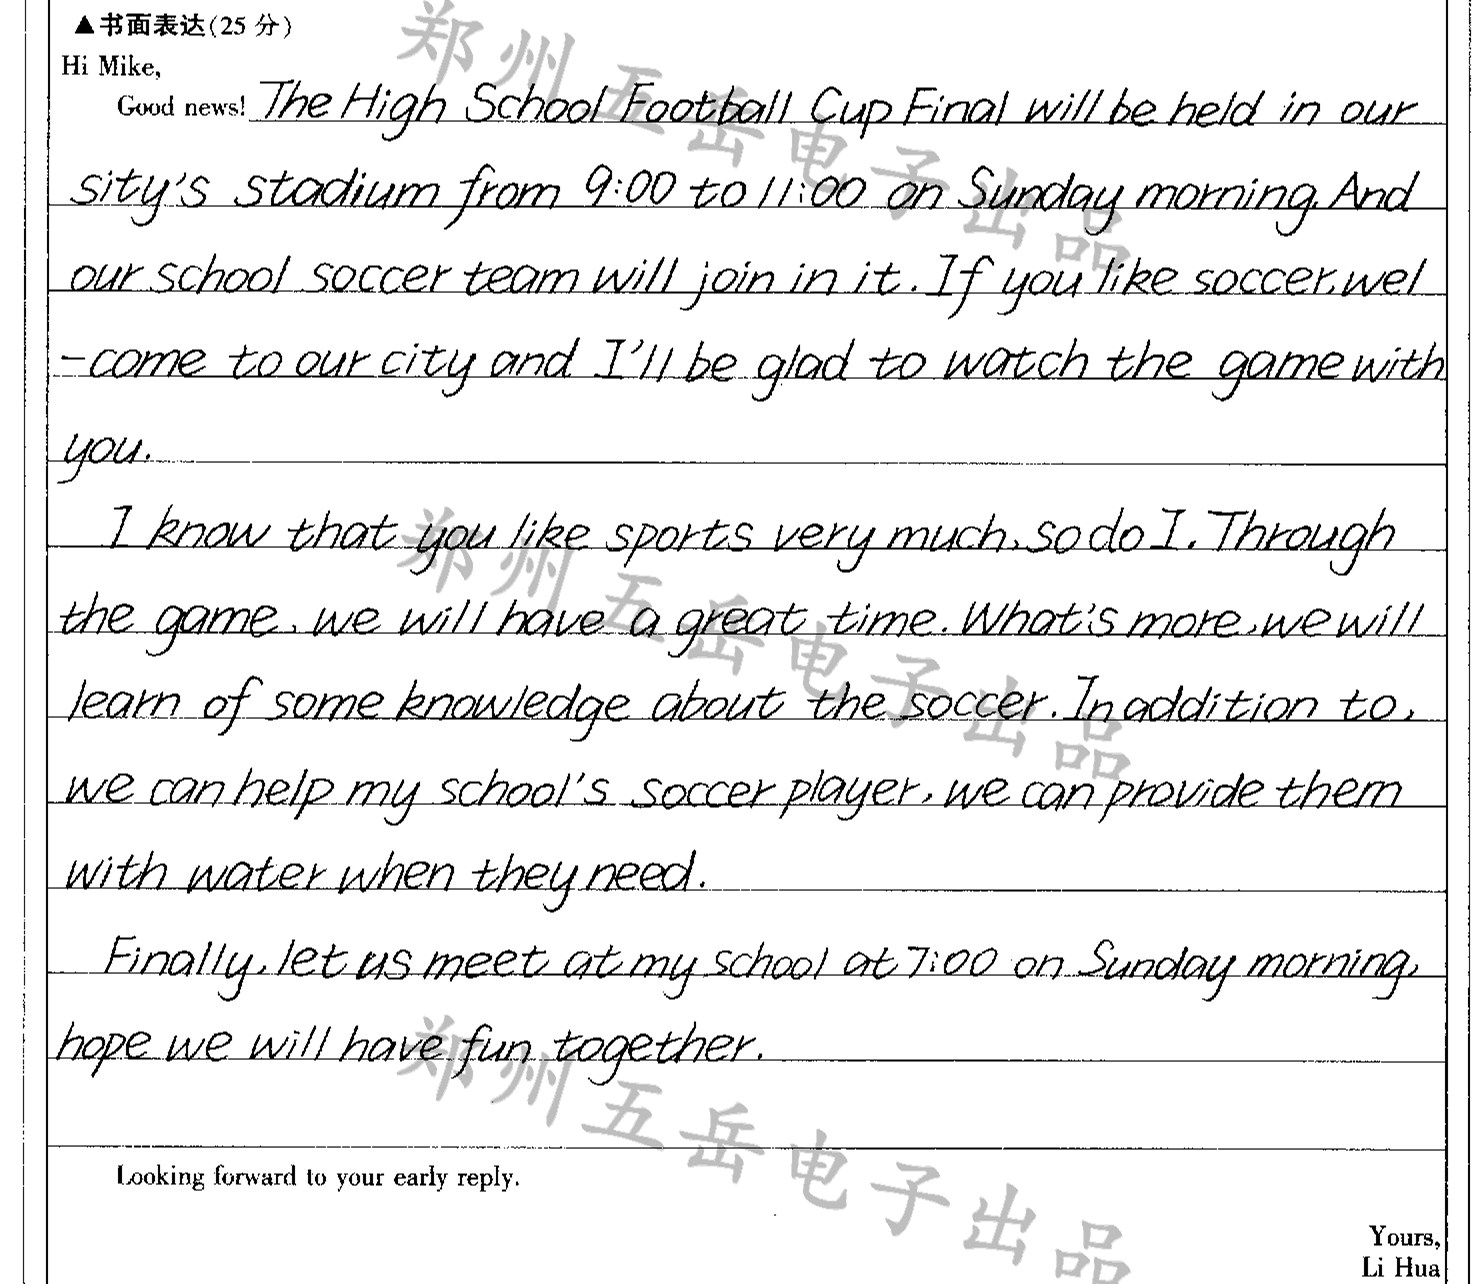 ▲书面表达(25 分)
Hi Mike,
Good news! The High School Football Cup Final will be held in our
sity's stadium from 9:00 to 11:00 on Sunday morning. And
our school soccer team will join in it. If you like soccer, wel
-come to our city and I'll be glad to watch the game with
you.
I know that you like sports very much, so do I. Through
the game, we will have a great time. What's more, we will
learn of some knowledge about the soccer. In addition to,
we can help my school's soccer player, we can provide them
with water when they need.
Finally, let us meet at my school at 7:00 on Sunday morning,
hope we will have fun together.
Looking forward to your early reply.
Yours,
Li Hua
郑州五岳电子出品
郑州五岳电子出品
郑州五岳电子出品